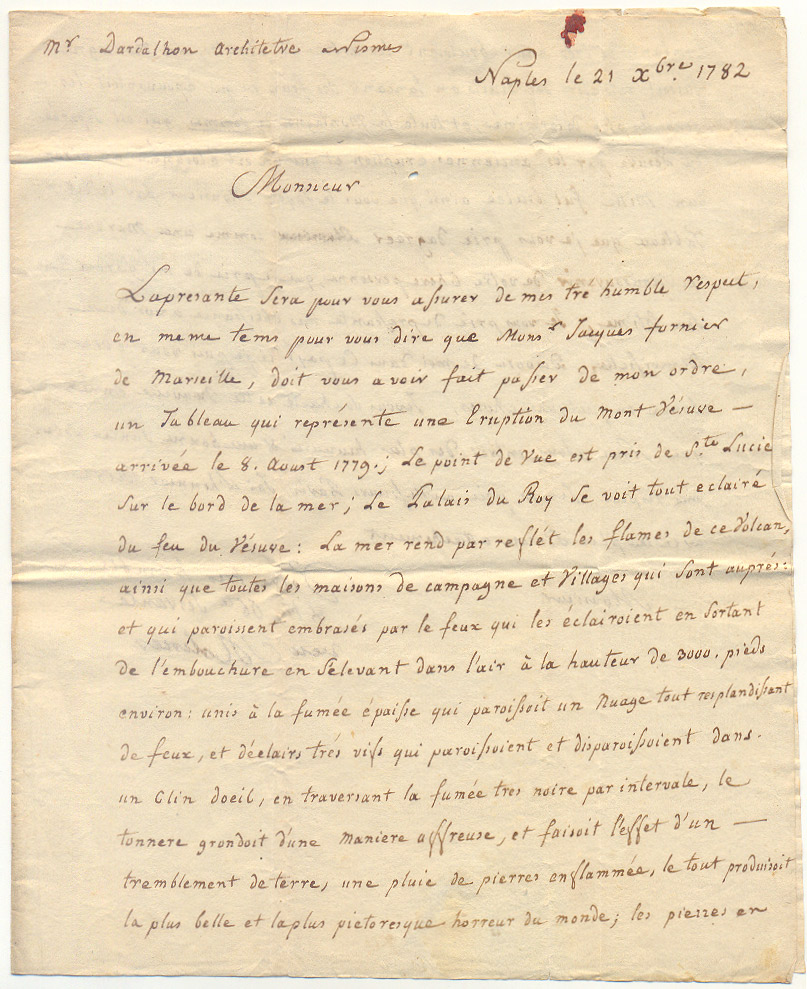 Mr Dardalhon Architetre a Nismes
Naples le 21 Xbre 1782
Monsieur
Lapresante sera pour vous assurer de mes tré humble respect,
en meme tems pour vous dire que Monsr Jacques fornier
de Marseille, doit vous avoir fait passer de mon ordre,
un Tableau qui représente une Eruption du Mont Vésuve —
arrivée le 8. Aoust 1779.; Le point de Vue est pris de Ste Lucie
sur le bord de la mer; Le Palais du Roy se voit tout eclairé
du feu du Vésuve: La mer rend par reflét les flames de ce Volcan,
ainsi que toutes les maisons de campagne et Villages qui sont auprés:
et qui paroissent embrasés par le feux qui les éclairoient en sortant
de l'embouchure en s'elevant dans l'air à la hauteur de 3000. pieds
environ: unis à la fumée épaisse qui paroissoit un Nuage tout resplandissant
de feux, et d'éclairs trés vifs qui paroissoient et disparoissoient dans.
un Clin doeil, en traversant la fumée tres noire par intervale, le
tonnere grondoit d'une maniere affreuse, et faisoit l'effet d'un —
tremblement de terre, une pluie de pierres enflammée, le tout produisoit
la plus belle et laplus pictoresque horreur du monde; les pierres en